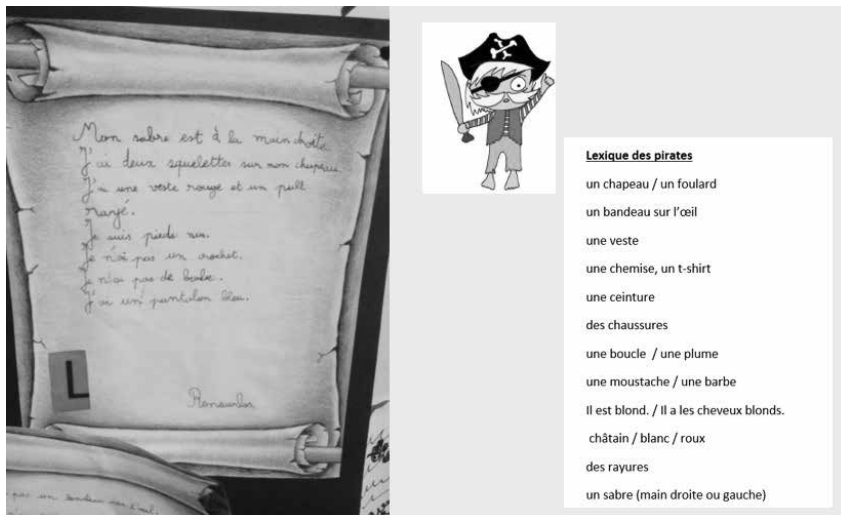 Mon sabre est à la main droite.
J'ai deux squelettes sur mon chapeau.
J'ai une veste rouge et un pull
rayé.
Je suis pieds nus.
Je n'ai pas un crochet.
Je n'ai pas de barbe.
J'ai un pantalon bleu.
L
pas un bandeau sur l'œil.
Lexique des pirates
un chapeau / un foulard
un bandeau sur l'œil
une veste
une chemise, un t-shirt
une ceinture
des chaussures
une boucle / une plume
une moustache / une barbe
Il est blond. / Il a les cheveux blonds.
châtain / blanc / roux
des rayures
un sabre (main droite ou gauche)